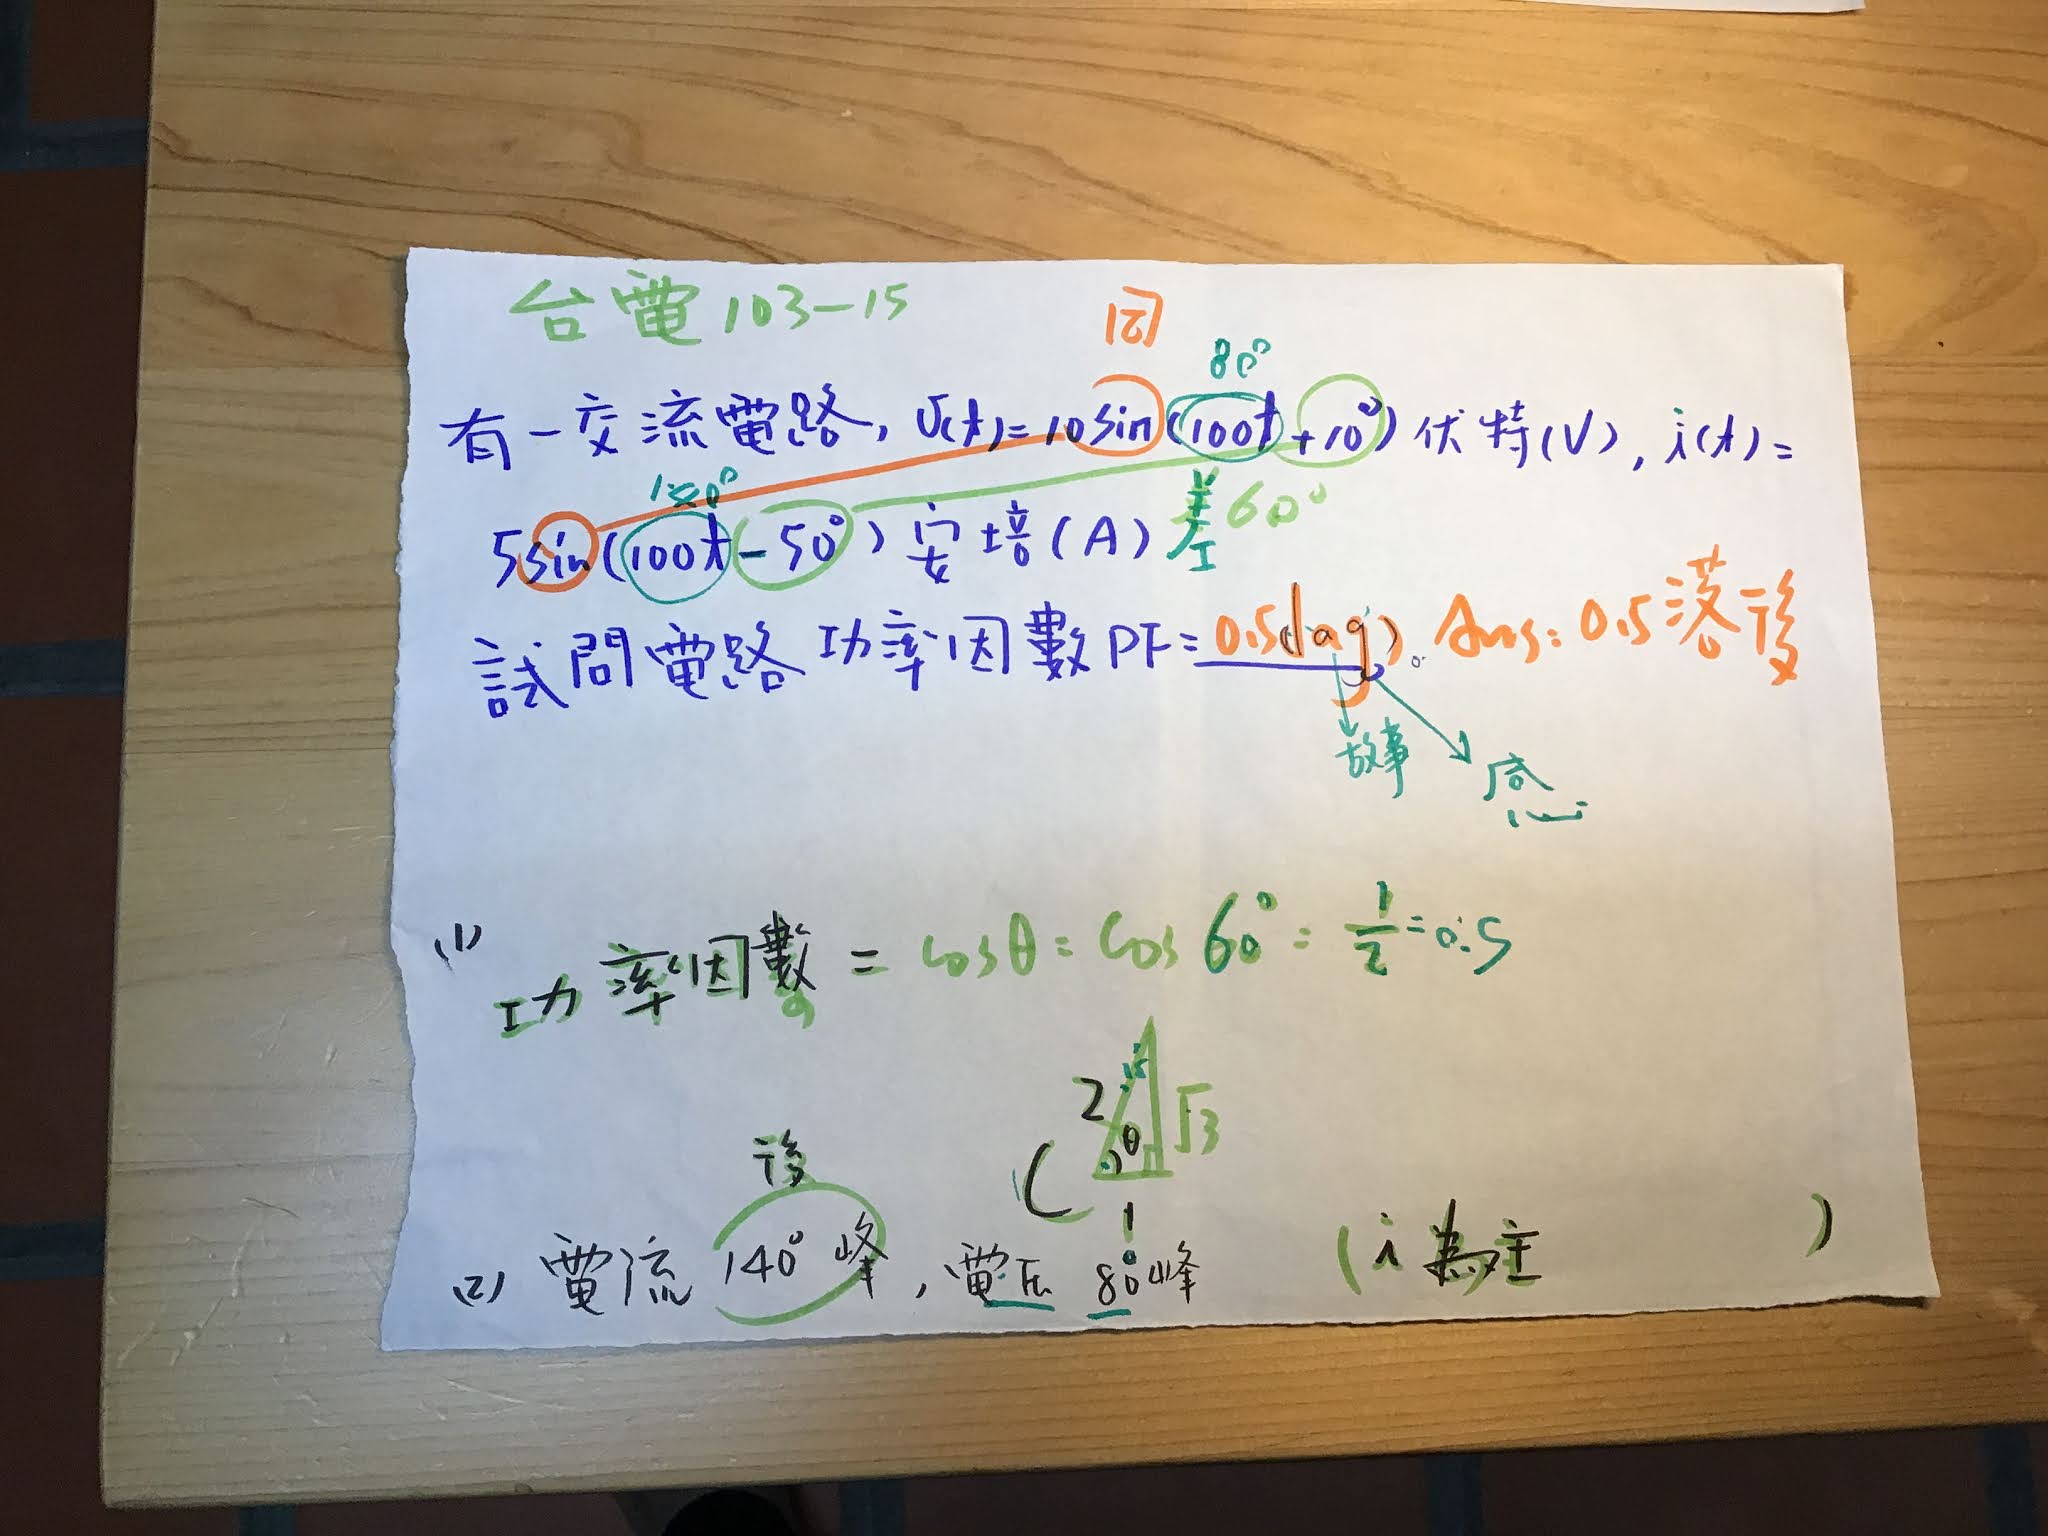 台電 103-15
同
80°
有一交流電路, v(t)=10sin(100t+10°)伏特(V), i(t)=
5sin(100t-50°)安培(A) 差 60°
試問電路功率因數PF=0.5(lag)。Ans: 0.5落後
故事
感
(1) 功率因數 = cosθ = cos 60° = 1/2 = 0.5
2 θ √3
1
後
(2) 電流 140°峰, 電压 80°峰 (i 為主 )